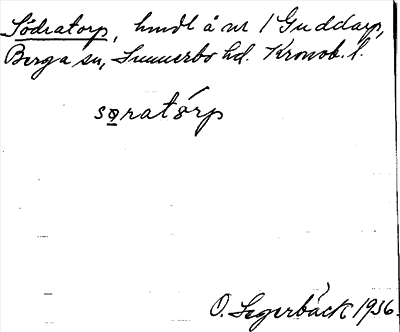 Södratorp, hmdl å nr 1 Guddarp,
Berga sn, Sunnerbo hd. Kronob. l.
sǫratórp
O. Segerbäck 1936.